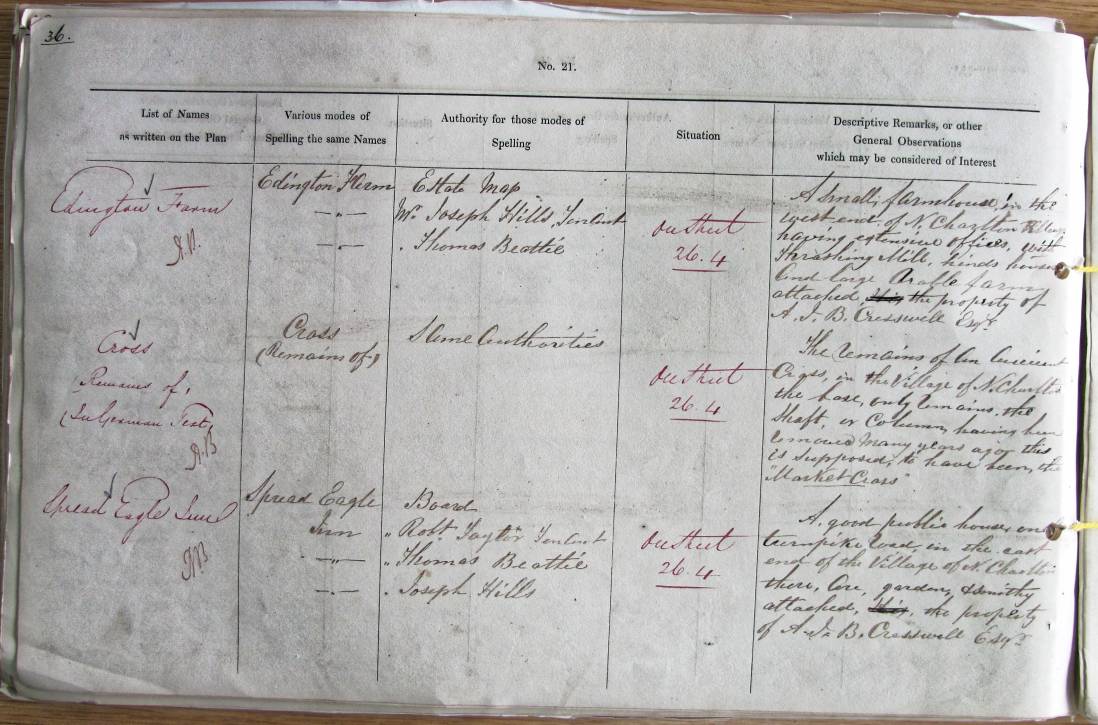 36.
No. 21.
List of Names
as written on the Plan
Various modes of
Spelling the same Names
Authority for those modes of
Spelling
Situation
Descriptive Remarks, or other
General Observations
which may be considered of Interest
Edington Farm
Edington Farm
Estate Map
Mr. Joseph Hills, Tenant
" Thomas Beattie
On Sheet
26.4
A small farmhouse, in the
west end of N. Charlton Village
having extensive offices, with
Thrashing Mill, hinds houses
and large Arable farm
attached, the property of
A. J. B. Cresswell Esqr.
Cross
Remains of,
(In German Text)
A.B
Cross
(Remains of)
Same Authorities
On Sheet
26.4
The remains of an Ancient
Cross, in the Village of N. Charlton
the base, only remains, the
Shaft, or Column, having been
removed many years ago, this
is supposed, to have been, the
"Market Cross"
Spread Eagle Inn
Spread Eagle
Inn
Board
" Robt. Taylor Tenant
" Thomas Beattie
" Joseph Hills
On Sheet
26.4
A good public house, on
turnpike road, in the east
end of the Village of N. Charlton
there, are, garden, & Smithy
attached, the property
of A. J. B. Cresswell Esqr.